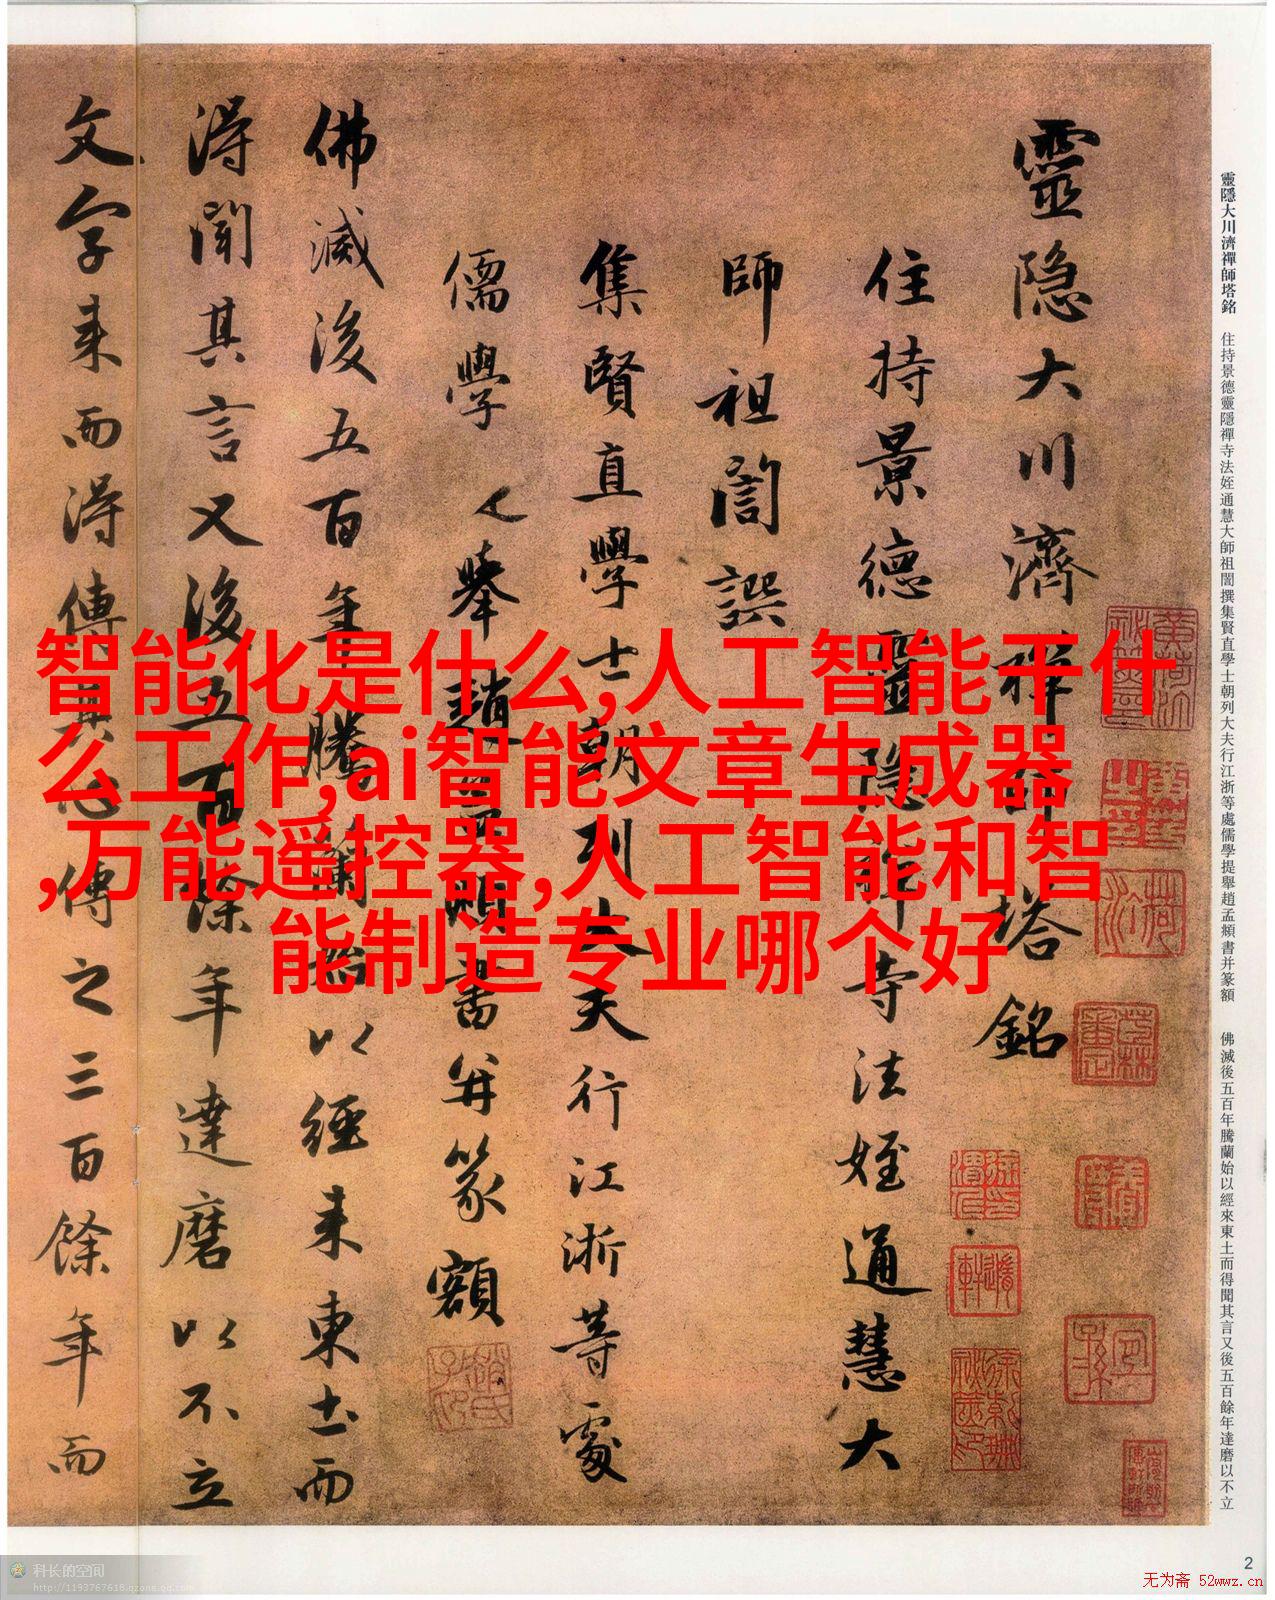 靈隐大川濟禪師塔銘
住持景德靈隐禅寺法姪通慧大
師祖誾譔
集賢直學士朝列大夫行江浙等處
儒學提舉趙孟頫書并篆額
佛滅後五百年騰蘭始以經来東土而
淂聞其言又後五百餘年達磨以不立
文字来而淂傳其心傳之三百餘年而
智能化是什么,人工智能干什
么工作,ai智能文章生成器
,万能遥控器,人工智能和智
能制造专业哪个好
靈隱大川濟禪師塔銘 住持景德靈隱禪寺法姪通慧大師祖誾撰集賢直學士朝列大夫行江浙等處儒學提舉趙孟頫書并篆額 佛滅後五百年騰蘭始以經來東土而得聞其言又後五百餘年達磨以不立
2
科长的空间
http://1193767618.qzone.qq.com
无为斋 52wwz.cn